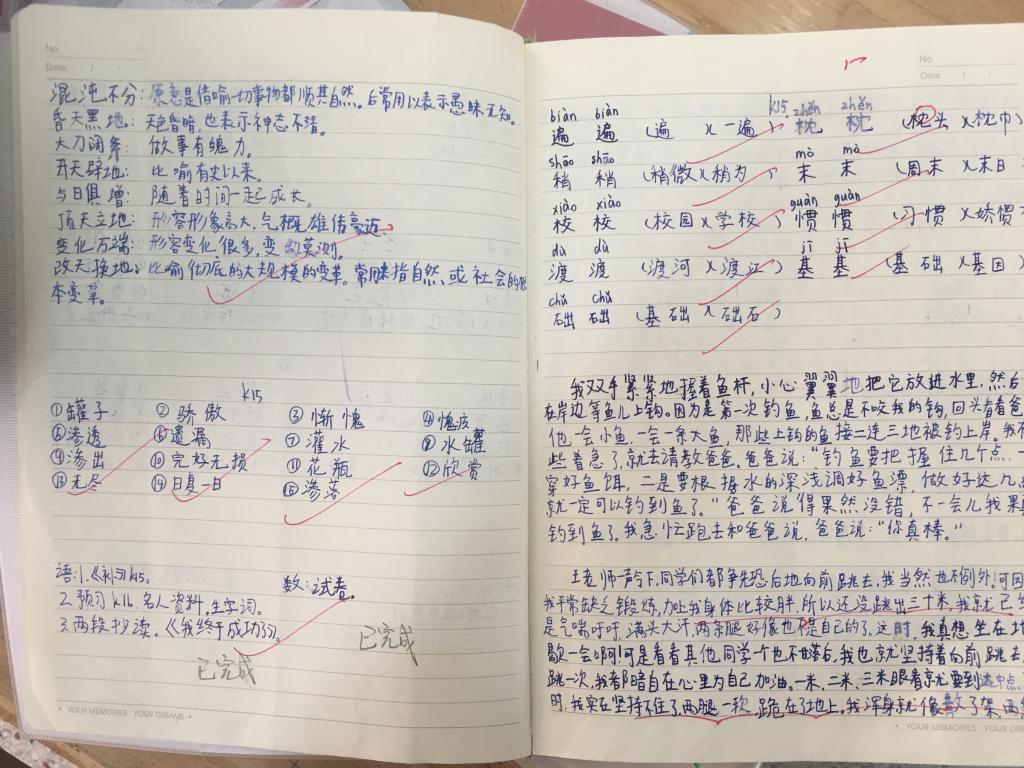 No.
Date. / /
混沌不分:原意是借喻一切事物都顺其自然。后常用以表示愚昧无知。
昏天黑地:天色昏暗,也表示神志不清。
大刀阔斧:做事有魄力。
开天辟地:比喻有史以来。
与日俱增:随着时间一起成长。
顶天立地:形容形象高大,气概雄伟豪迈。
变化万端:形容变化很多,变幻莫测。
改天换地:比喻彻底的大规模的变革。常用来指自然、或社会的
本变革。
K15
①罐子 ②骄傲 ③惭愧 ④愧疚
⑤渗透 ⑥遗漏 ⑦灌水 ⑧水罐
⑨渗出 ⑩完好无损 ⑪花瓶 ⑫欣赏
⑬无尽 ⑭日复一日 ⑮渗落
语:1.《补习》K15。 数:试卷。
2.预习K16.名人资料,生字词。
3.两段抄读。《我终于成功了》。
已完成 已完成
YOUR MEMORIES YOUR DREAMS
No.
Date. / /
biàn biàn K15 zhěn zhěn
遍 遍 (遍 X 一遍) 枕 枕 (枕头 X 枕巾
shāo shāo mò mò
稍 稍 (稍微 X 稍为) 末 末 (周末 X 末日
xiào xiào guàn guàn
校 校 (校园 X 学校) 惯 惯 (习惯 X 娇惯
dù dù jī jī
渡 渡 (渡河 X 渡江) 基 基 (基础 X 基因
chǔ chǔ
础 础 (基础 X 础石)
我双手紧紧地握着鱼杆,小心翼翼地把它放进水里,然后
在岸边等鱼儿上钩。因为是第一次钓鱼,鱼总是不咬我的钩,回头看看爸
他一会小鱼,一会一条大鱼,那些上钩的鱼接二连三地被钓上岸。我有
些着急了,就去请教爸爸。爸爸说:“钓鱼要把握住几个点,一
穿好鱼饵,二是要根据水的深浅调好鱼漂,做好这几点
就一定可以钓到鱼了。”爸爸说得果然没错,不一会儿我果真
钓到鱼了。我急忙跑去和爸爸说,爸爸说:“你真棒。”
王老师一声令下,同学们都争先恐后地向前跳去,我当然也不例外!可因
我平常缺乏锻炼,加上我身体比较胖,所以还没跳出三十米,我就已经
是气喘吁吁,满头大汗,两条腿好像也不是自己的了。这时,我真想坐在地
歇一会啊!可是看看其他同学一个也不甘落后,我也就坚持着向前跳去,
跳一次,我都暗自在心里为自己加油。一米、二米、三米眼看就要到途中点
时,我实在坚持不住了,两腿一软,跪在了地上。我浑身就像散了架,两条
YOUR MEMORIES YOUR DRE